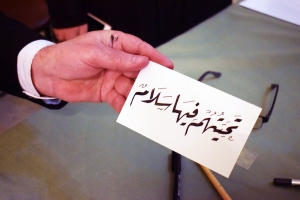 تَحِيَّتُهُمْ فِيهَا سَلَامٌ